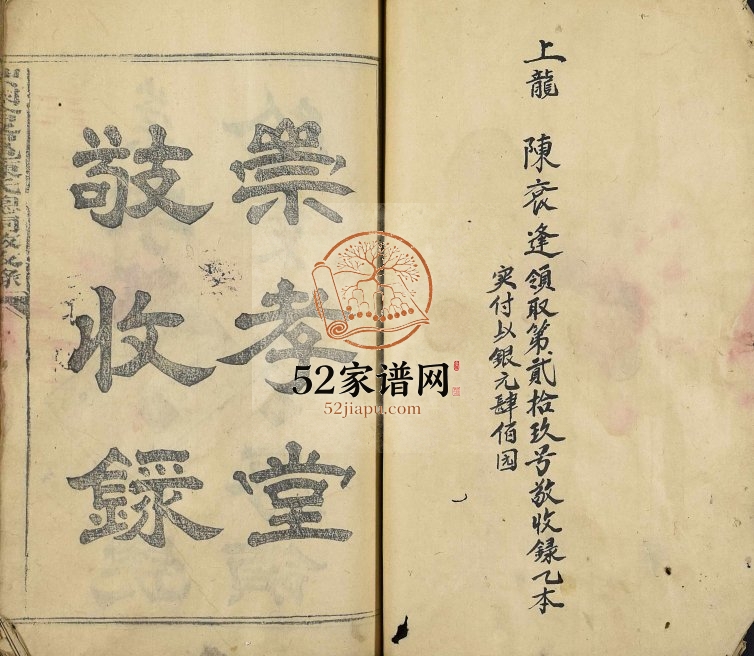 上龍　陳衮逢領取第貳拾玖号敬收録乙本
实付以銀元肆佰园
崇孝堂
敬收錄
52家谱网
52jiapu.com